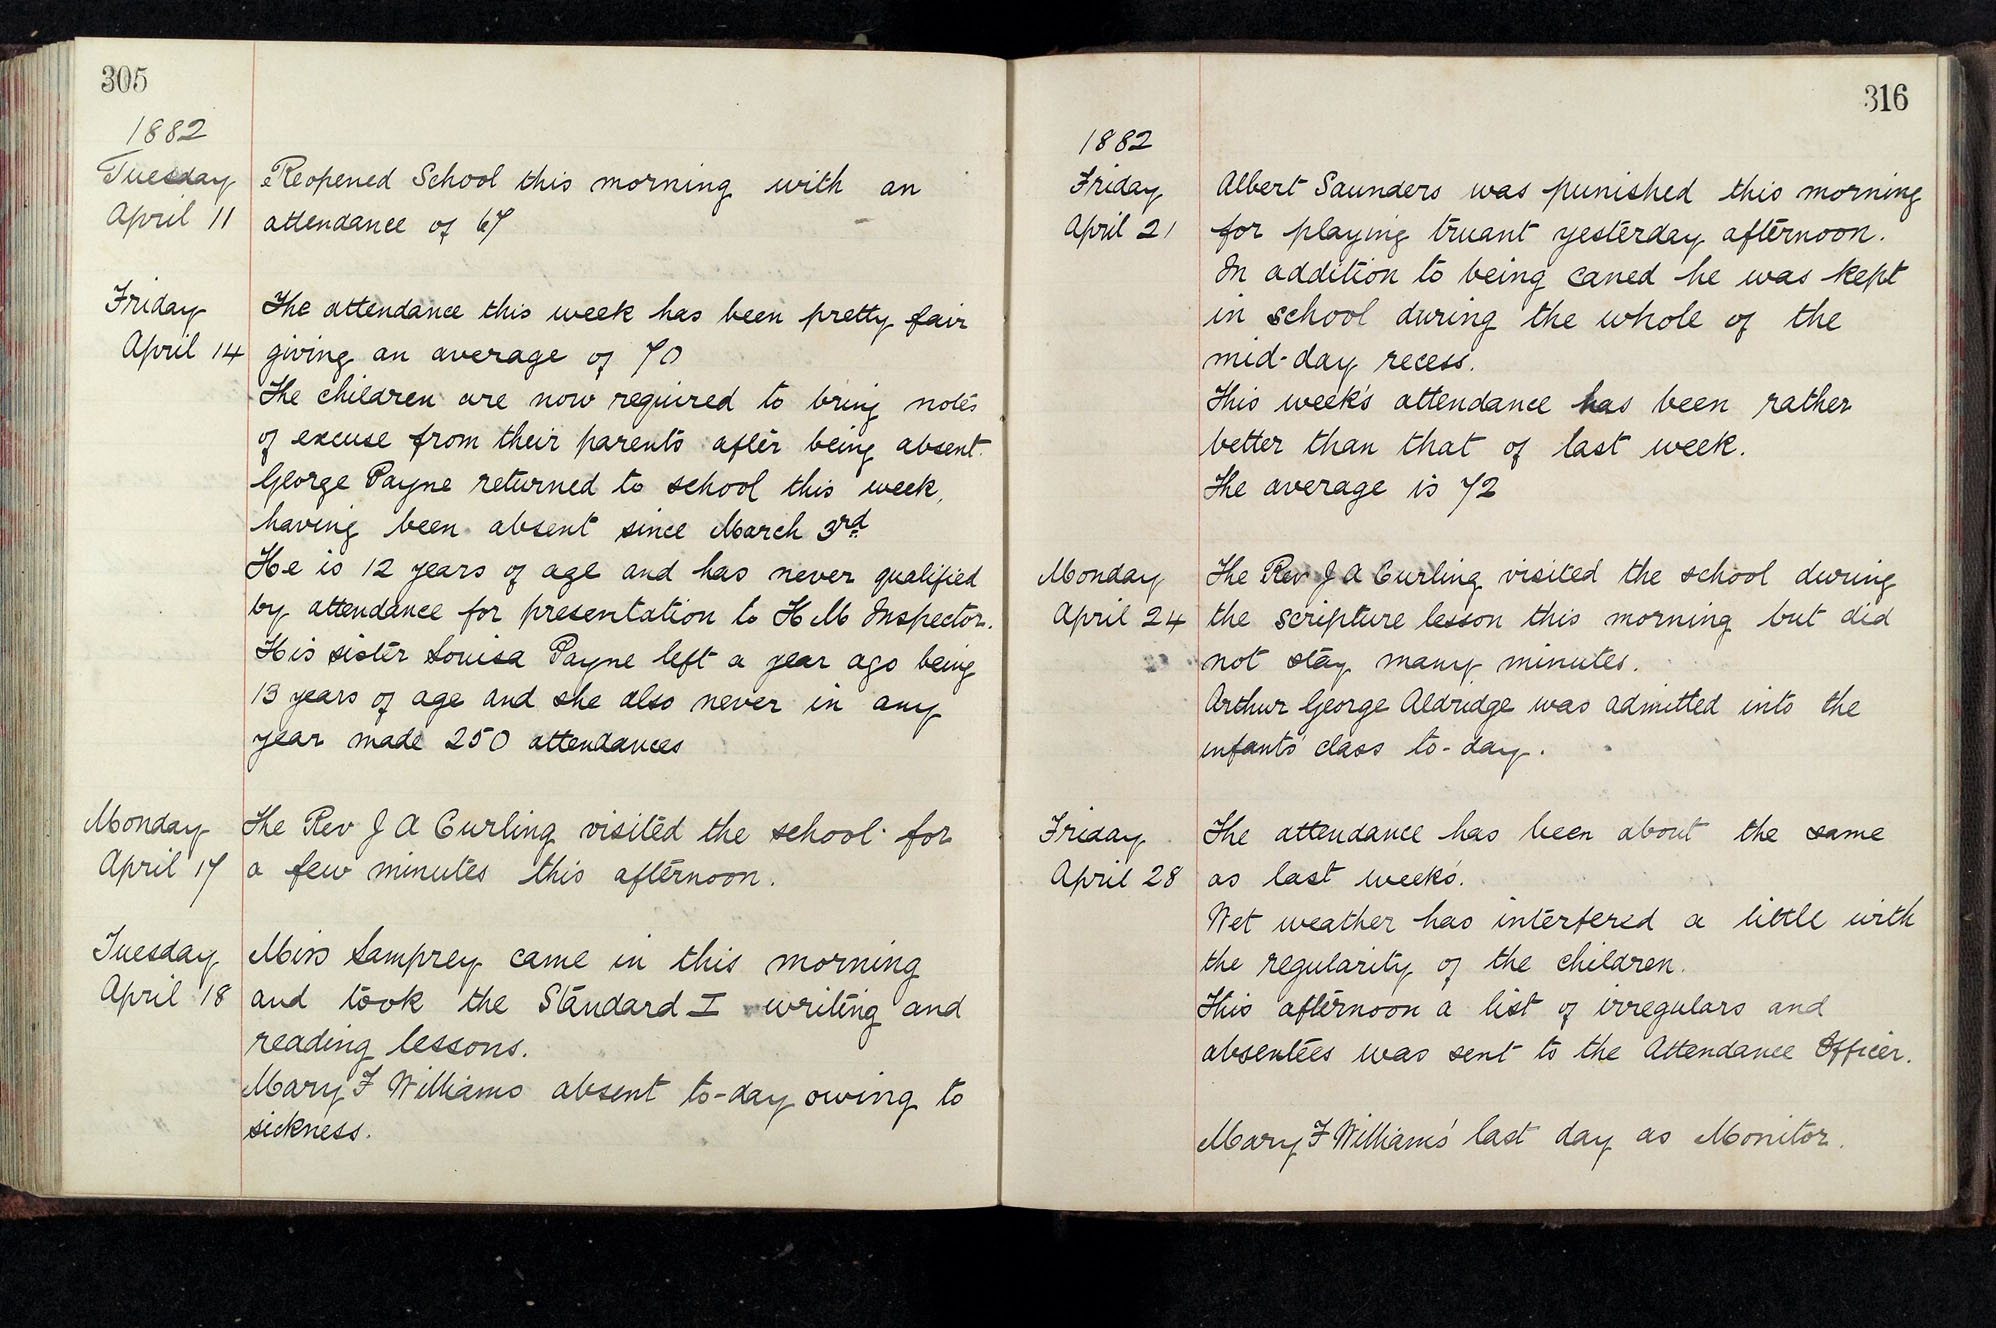 305
1882
Tuesday
April 11
Reopened School this morning with an
attendance of 67
Friday
April 14
The attendance this week has been pretty fair
giving an average of 70
The children are now required to bring notes
of excuse from their parents after being absent.
George Payne returned to school this week,
having been absent since March 3rd
He is 12 years of age and has never qualified
by attendance for presentation to H M Inspector.
His sister Louisa Payne left a year ago being
13 years of age and she also never in any
year made 250 attendances
Monday
April 17
The Rev J A Curling visited the school for
a few minutes this afternoon.
Tuesday
April 18
Miss Lamprey came in this morning
and took the Standard I writing and
reading lessons.
Mary F Williams absent to-day owing to
sickness.
316
1882
Friday
April 21
Albert Saunders was punished this morning
for playing truant yesterday afternoon.
In addition to being caned he was kept
in school during the whole of the
mid-day recess.
This week's attendance has been rather
better than that of last week.
The average is 72
Monday
April 24
The Rev J A Curling visited the school during
the scripture lesson this morning but did
not stay many minutes.
Arthur George Aldridge was admitted into the
infants' class to-day.
Friday
April 28
The attendance has been about the same
as last week's.
Wet weather has interfered a little with
the regularity of the children.
This afternoon a list of irregulars and
absentees was sent to the Attendance Officer.
Mary F Williams' last day as Monitor.